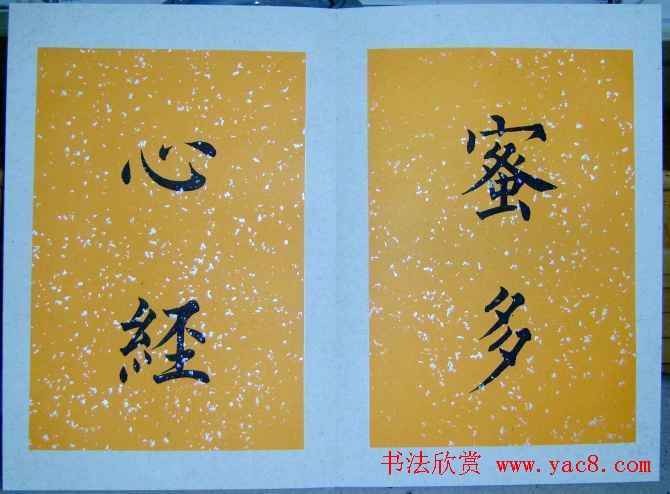 蜜多
心経
书法欣赏 www.yac8.com